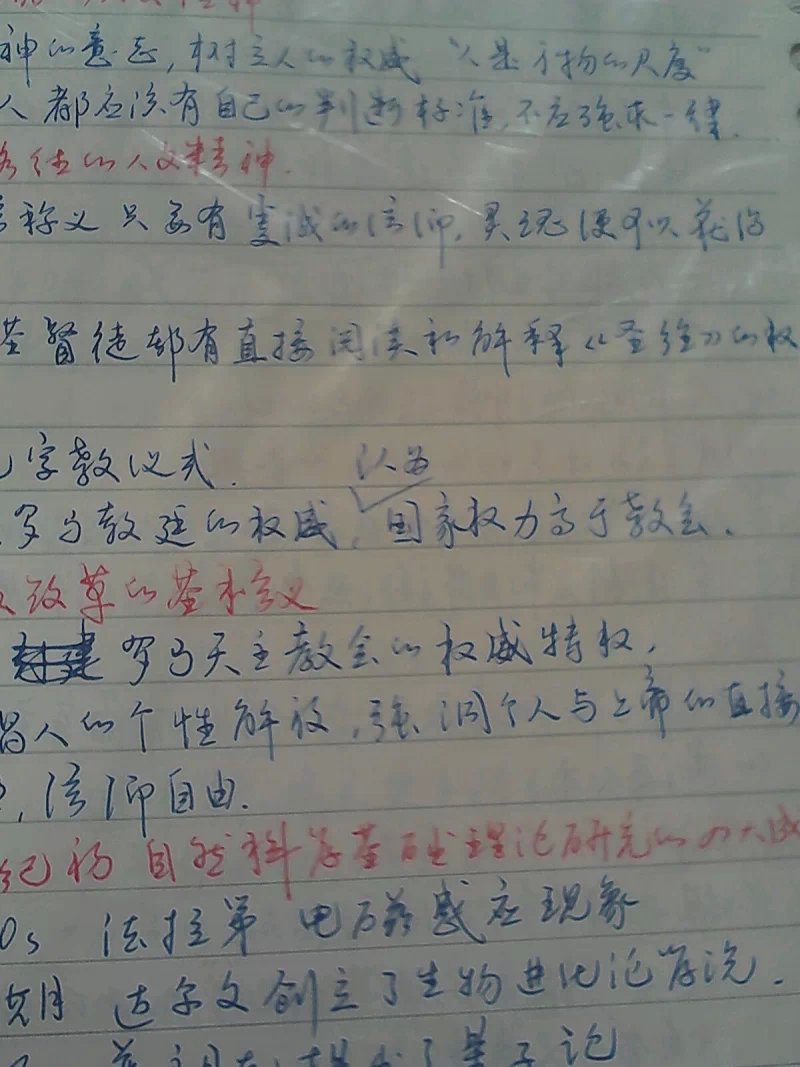 神的意志,树立人的权威 "人是万物的尺度"
人都应该有自己的判断标准,不应强求一律.
的人文精神.
称义 只要有虔诚的信仰,灵魂便可以获得
基督徒都有直接阅读和解释《圣经》的权
宗教仪式. 认为
罗马教廷的权威,国家权力高于教会.
改革的基本含义
罗马天主教会的权威特权,
倡人的个性解放,强调个人与上帝的直接
,信仰自由.
纪初 自然科学基础理论研究的四大成
0s 法拉第 电磁感应现象
达尔文创立了生物进化论学说.
提出了量子论